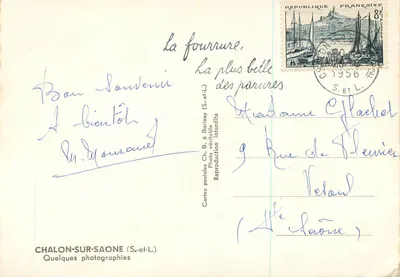 La fourrure,
La plus belle
des parures
RÉPUBLIQUE FRANÇAISE
8F
1956
S. ET L.
Bon Souvenir
A bientôt
Madame Gachet
9 Rue de Fleurier
Vesoul
(Hte Saône)
Cartes postales Ch. B. à Berissy (S.-et-L.)
Photo véritable
Reproduction interdite
CHALON-SUR-SAONE (S.-et-L.)
Quelques photographies